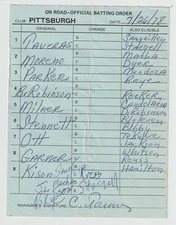 ON ROAD–OFFICIAL BATTING ORDER
CLUB PITTSBURGH DATE 7/26/78
ORIGINAL CHANGE ALSO ELIGIBLE
1 Taveras Sanguillen
Stargell
2 Moreno Macha
Dyer
3 Parker Mendoza
Brye
4 B. Robinson
Rooker
5 Milner Candelaria
D. Robinson
6 Stennett Blyleven
Bibby
7 Ott Tekulve
Jackson
8 Garner Whitson
Reuss
9 Kison Hamilton
MANAGER'S SIGNATURE C. Tanner